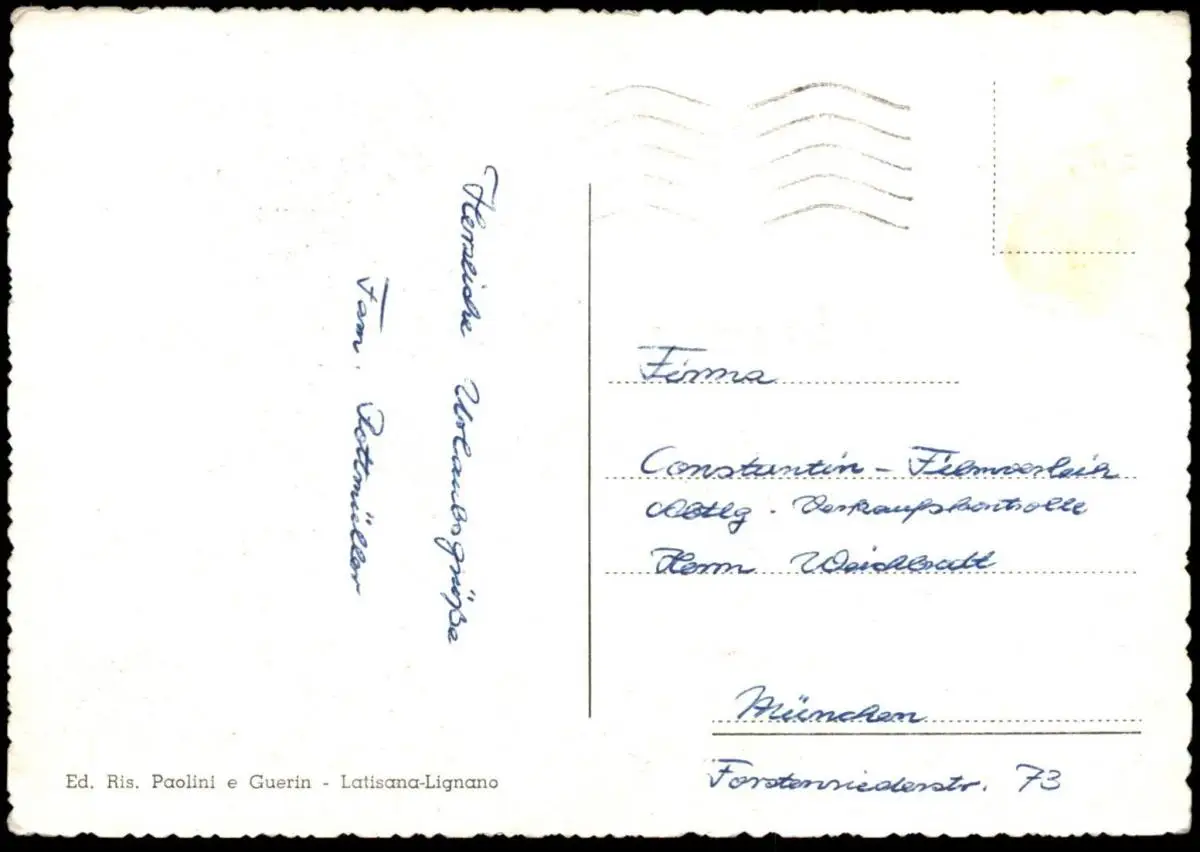 Herzliche Urlaubsgrüße
Fam. Rottmüller
Firma
Constantin - Filmverleih
Abtlg. Verkaufskontrolle
Herrn
München
Forstenriederstr. 73
Ed. Ris. Paolini e Guerin - Latisana-Lignano